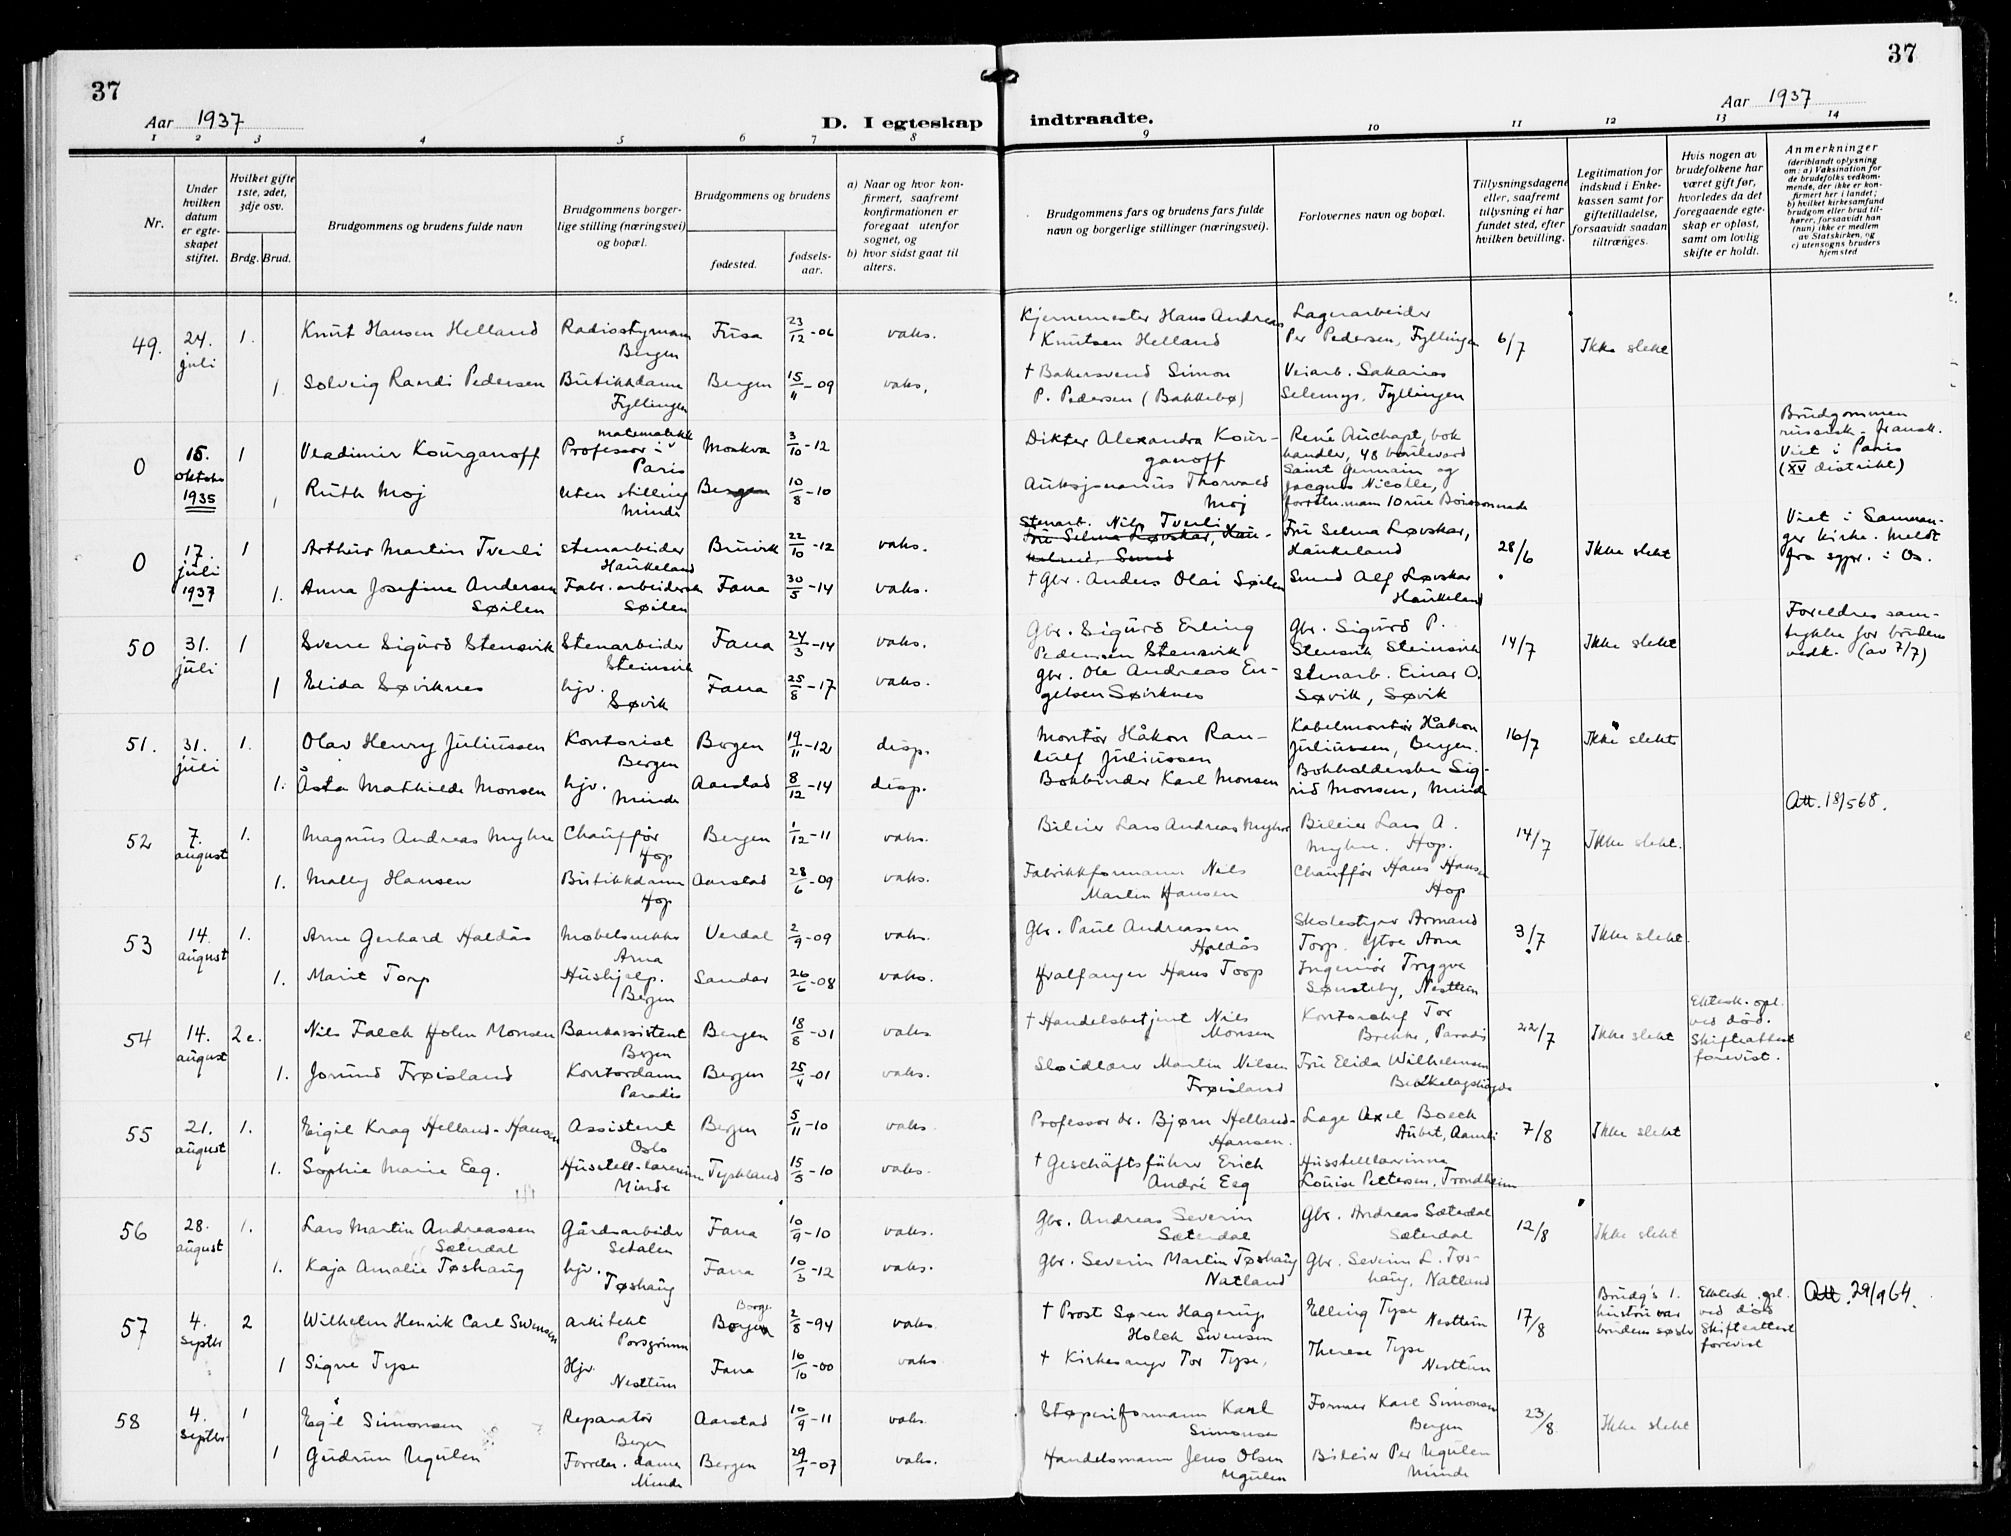 37
37
Aar 1937
D. I egteskap
indtraadte.
Aar 1937
1 2 3 4 5 6 7 8 9 10 11 12 13 14
Nr.
Under hvilken datum er egteskapet stiftet.
Hvilket gifte 1ste, 2det, 3dje osv.
Brdg. Brud.
Brudgommens og brudens fulde navn
Brudgommens borgerlige stilling (næringsvei) og bopæl.
Brudgommens og brudens
fødested.
fødselsaar.
a) Naar og hvor konfirmert, saafremt konfirmationen er foregaat utenfor sognet, og
b) hvor sidst gaat til alters.
Brudgommens fars og brudens fars fulde navn og borgerlige stillinger (næringsvei).
Forlovernes navn og bopæl.
Tillysningsdagene eller, saafremt tillysning ei har fundet sted, efter hvilken bevilling.
Legitimation for indskud i Enkekassen samt for giftetilladelse, forsaavidt saadan tiltrænges.
Hvis nogen av brudefolkene har været gift før, hvorledes da det foregaaende egteskap er opløst, samt om lovlig skifte er holdt.
Anmerkninger
(deriblandt oplysning om: a) Vaksination for de brudefolks vedkommende, der ikke er konfirmert her i landet; b) hvilket kirkesamfund brudgom eller brud tilhører, forsaavidt han (hun) ikke er medlem av Statskirken, og c) utensogns bruders hjemsted
49. 24. juli 1. Knut Hansen Helland Radiostyrmann Bergen Fusa 23/12-06 vaks. Kjernemester Hans Andreas Knutsen Helland Lagerarbeider Per Pedersen, Fyllingen 6/7 Ikke slekt
1. Solveig Randi Pedersen Butikkdame Fyllingen Bergen 15/11-09 vaks. † Bakersvend Simon P. Pedersen (Bakkebø) Veiarb. Sakarias Selemys. Fyllingen
0 15. oktober 1935 1 Vladimir Kourganoff Professor i matematikk Paris Moskva 3/10-12 Dikter Alexandra Kourganoff René Auchapt, bokhandler, 48 boulevard Saint Germain og Brudgommen russisk-fransk. Viet i Paris (XV distrikt)
1 Ruth Moj uten stilling Minde Bergen 10/8-10 Auksjonarius Thorvald Moj Jacques Nicolle, forretn.mann 10 rue Boissonnade
0 17. juli 1937 1 Arthur Martin Tverli stenarbeider Haukeland Bruvik 22/10-12 vaks. Stenarb. Nils Tverli Fru Selma Løvskar, Haukeland, Smed Fru Selma Løvskar, Haukeland 28/6 Ikke slekt Viet i Samnanger kirke. Meldt fra sypr. i Os.
1. Anna Josefine Andersen Søilen Fabr. arbeiderske Søilen Fana 30/5-14 vaks. † Gbr. Anders Olai Søilen Smed Alf Løvskar Haukeland
50 31. juli 1 Sverre Sigurd Stensvik Stenarbeider Steinsvik Fana 24/3-14 vaks. Gbr. Sigurd Erling Pedersen Stensvik Gbr. Sigurd P. Stensvik Steinsvik 14/7 Ikke slekt Foreldres samtykke for brudens vedk. (av 7/7)
1 Elida Søvirknes hjv. Søvik Fana 25/8-17 vaks. gbr. Ole Andreas Engelsen Søvirknes stenarb. Einar O. Søvik, Søvik
51. 31. juli 1. Olav Henry Juliussen Kontorist Bergen Bergen 19/11-12 disp. Montør Håkon Randulf Juliussen Kabelmontør Håkon Juliussen, Bergen. 16/7 Ikke slekt
1. Åsta Mathilde Monsen hjv. Minde Aarstad 8/12-14 disp. Bokbinder Karl Monsen Bokholderske Sigrid Monsen, Minde
Att. 18/5 68.
52 7. august 1. Magnus Andreas Myhre Chauffør Hop Bergen 1/12-11 vaks. Bileier Lars Andreas Myhre Bileier Lars A. Myhre. Hop. 14/7 Ikke slekt.
1. Molly Hansen Butikkdame Hop Aarstad 28/6-09 vaks. Fabrikkformann Nils Martin Hansen Chauffør Hans Hansen Hop
53 14. august 1. Arne Gerhard Haldås Møbelsnekker Arna Verdal 2/9-09 vaks. Gbr. Paul Andreassen Haldås Skolestyrer Armand Torp. Ytre Arna 3/7 Ikke slekt.
1. Marit Torp Hushjelp. Bergen Sandar 26/6-08 vaks. Hvalfanger Hans Torp Ingeniør Trygve Sønsteby, Nesttun
54 14. august 2e. Nils Falck Holm Monsen Bankassistent Bergen Bergen 18/8-01 vaks. † Handelsbetjent Nils Monsen Kontorchef Tor Brekke, Paradis 22/7 Ikke slekt Ektesk. opl. ved død. Skifteattest forevist.
1. Jorund Frøisland Kontordame Paradis Bergen 25/4-01 vaks. Sløidlærer Martin Nilsen Frøisland Fru Elida Wilhelmsen
55 21. august 1. Eigil Krag Helland-Hansen Assistent Oslo Bergen 5/11-10 vaks. Professor dr. Bjørn Helland-Hansen. Lege Axel Boeck Aubert, Aamli 7/8 Ikke slekt
1. Sophie Marie Esq. Husstell-lærerinne Minde Tyskland 15/5-10 vaks. † Geschäftsführer Erich André Esq Husstellærinne Louise Pettersen, Trondheim
56 28. august 1. Lars Martin Andreassen Sæterdal Gårdsarbeider Sedalen Fana 10/9-10 vaks. Gbr. Andreas Severin Sæterdal Gbr. Andreas Sæterdal Sæterdal 12/8 Ikke slekt
1. Kaja Amalie Tøshaug hjv. Tøshaug Fana 10/3-12 vaks. Gbr. Severin Martin Tøshaug Natland Gbr. Severin L. Tøshaug, Natland
57 4. septbr 2 Wilhelm Henrik Carl Swensen arkitekt Porsgrunn Borge 2/8-94 vaks. † Prost Søren Hagerup Holck Swensen Elling Type Nesttun 17/8 Brudg's 1. hustru var brudens søster Ektesk. opl. ved død Skifteattest forevist Att. 29/9 64.
1 Signe Type Hjv. Nesttun Fana 16/10-00 vaks † Kirkesanger Tor Type, Therese Type Nesttun
58 4. septbr. 1 Egil Simonsen Reparatør Bergen Aarstad 10/9-11 vaks. Støperiformann Karl Simonsen Former Karl Simonsen Bergen 23/8 Ikke slekt
1 Gudrun Ugulen Forretn. dame Minde Bergen 29/1-07 vaks. Handelsmann Jens Olsen Ugulen Bileier Per Ugulen Minde